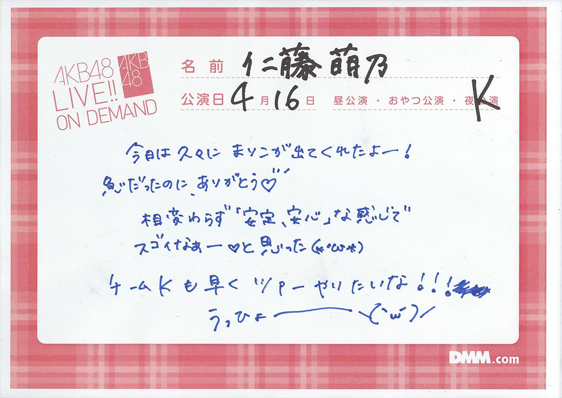 AKB48
LIVE!!
ON DEMAND
AKB
48
名前 仁藤萌乃
公演日 4月16日 昼公演・おやつ公演・夜公演 K
今日は久々に まりこが出てくれたよー!
急だったのに、ありがとう♡
相変わらず「安定、安心」な感じで
スゴイなぁー♡と思った(*・ω・*)
チームKも早く ツアーやりたいな!!!
うっひょーーー
DMM.com